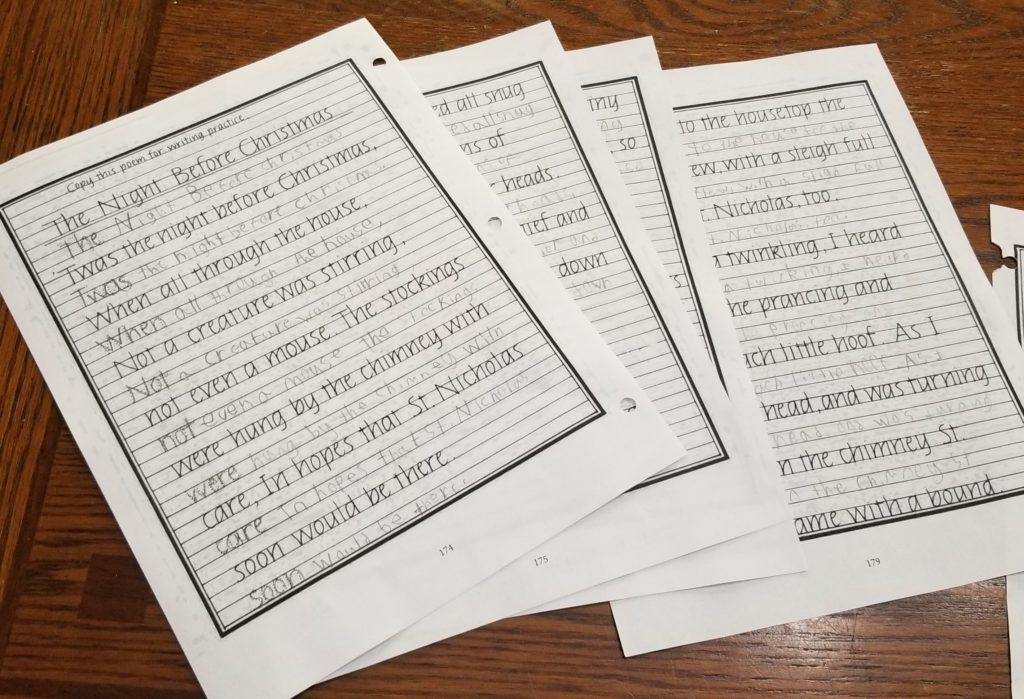 Copy this poem for writing practice
The Night Before Christmas
The Night Before Christmas
'Twas the night before Christmas,
Twas the night before Christmas
When all through the house,
When all through the house,
Not a creature was stirring,
Not a creature was
not even a mouse. The stockings
not even a mouse The stockings
were hung by the chimney with
were hung by the chimney with
care, In hopes that St. Nicholas
care In hopes that St Nicholas
soon would be there.
soon would be there.
174
ed all snug
of
heads
ief and
down
175
ny
so
s
to the housetop the
to the house top the
ew, with a sleigh full
with a sleigh full
. Nicholas, too.
Nicholas, too.
a twinkling, I heard
a I heard
he prancing and
prancing and
ach little hoof. As I
ach little hoof As I
head, and was turning
head and was turning
n the chimney St.
n the chimney ST
ame with a bound
179